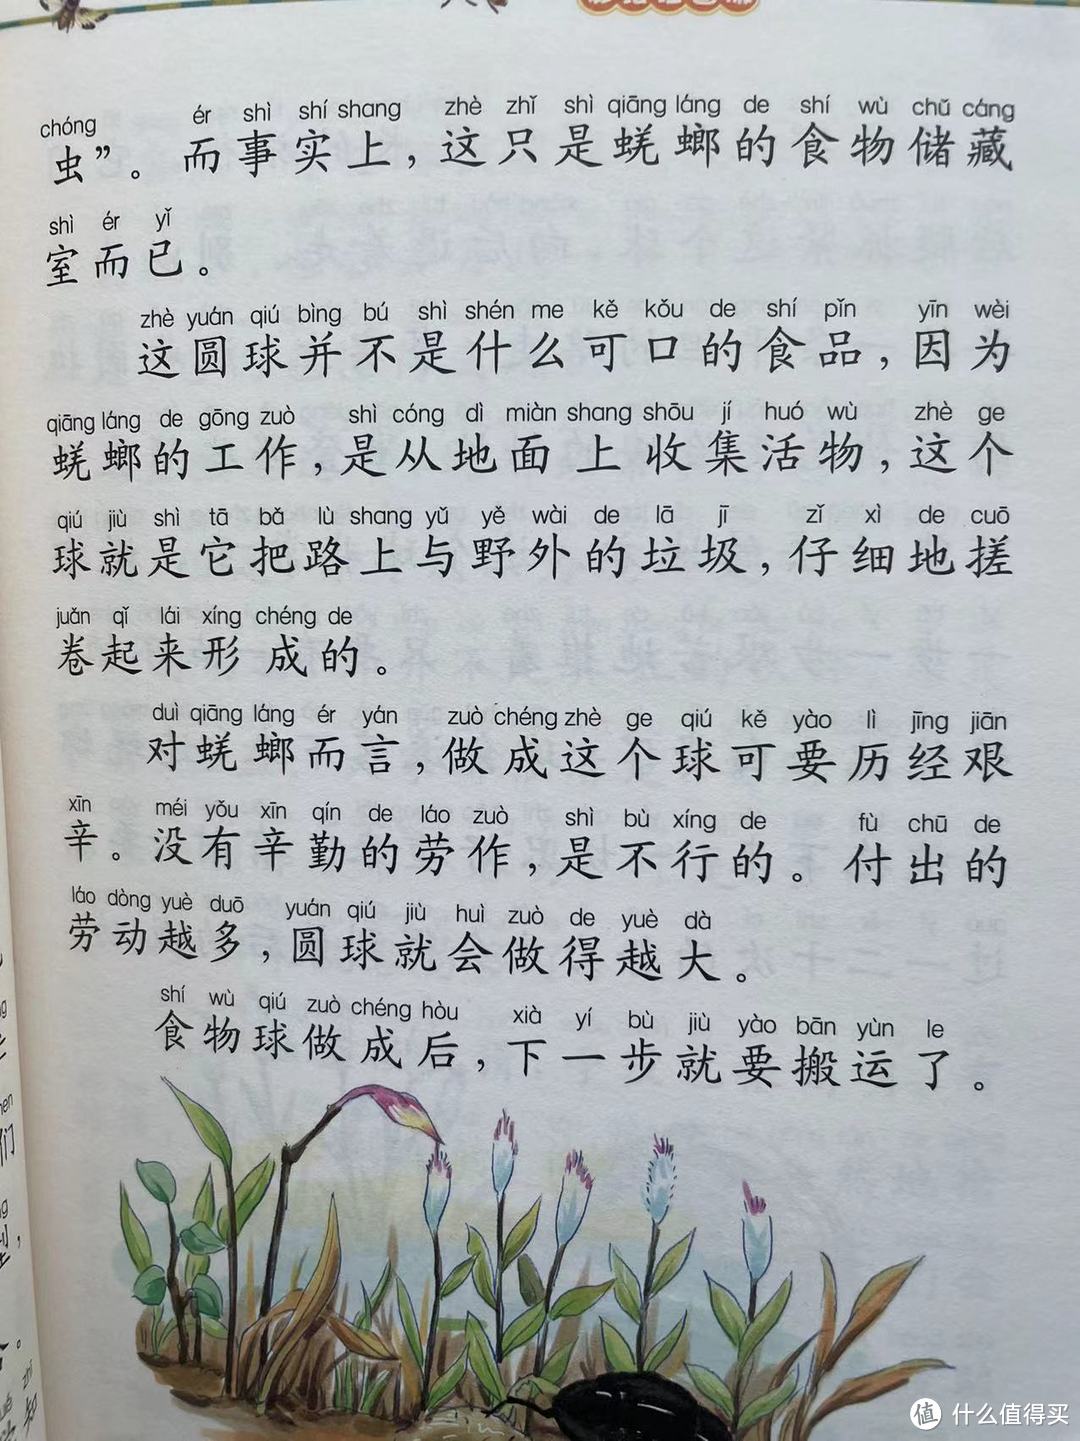 chóng ér shì shí shang zhè zhǐ shì qiāng láng de shí wù chǔ cáng
虫”。而事实上，这只是蜣螂的食物储藏
shì ér yǐ
室而已。
zhè yuán qiú bìng bú shì shén me kě kǒu de shí pǐn yīn wèi
这圆球并不是什么可口的食品，因为
qiāng láng de gōng zuò shì cóng dì miàn shang shōu jí huó wù zhè ge
蜣螂的工作，是从地面上收集活物，这个
qiú jiù shì tā bǎ lù shang yǔ yě wài de lā jī zǐ xì de cuō
球就是它把路上与野外的垃圾，仔细地搓
juǎn qǐ lái xíng chéng de
卷起来形成的。
duì qiāng láng ér yán zuò chéng zhè ge qiú kě yào lì jīng jiān
对蜣螂而言，做成这个球可要历经艰
xīn méi yǒu xīn qín de láo zuò shì bù xíng de fù chū de
辛。没有辛勤的劳作，是不行的。付出的
láo dòng yuè duō yuán qiú jiù huì zuò de yuè dà
劳动越多，圆球就会做得越大。
shí wù qiú zuò chéng hòu xià yí bù jiù yào bān yùn le
食物球做成后，下一步就要搬运了。
值 什么值得买